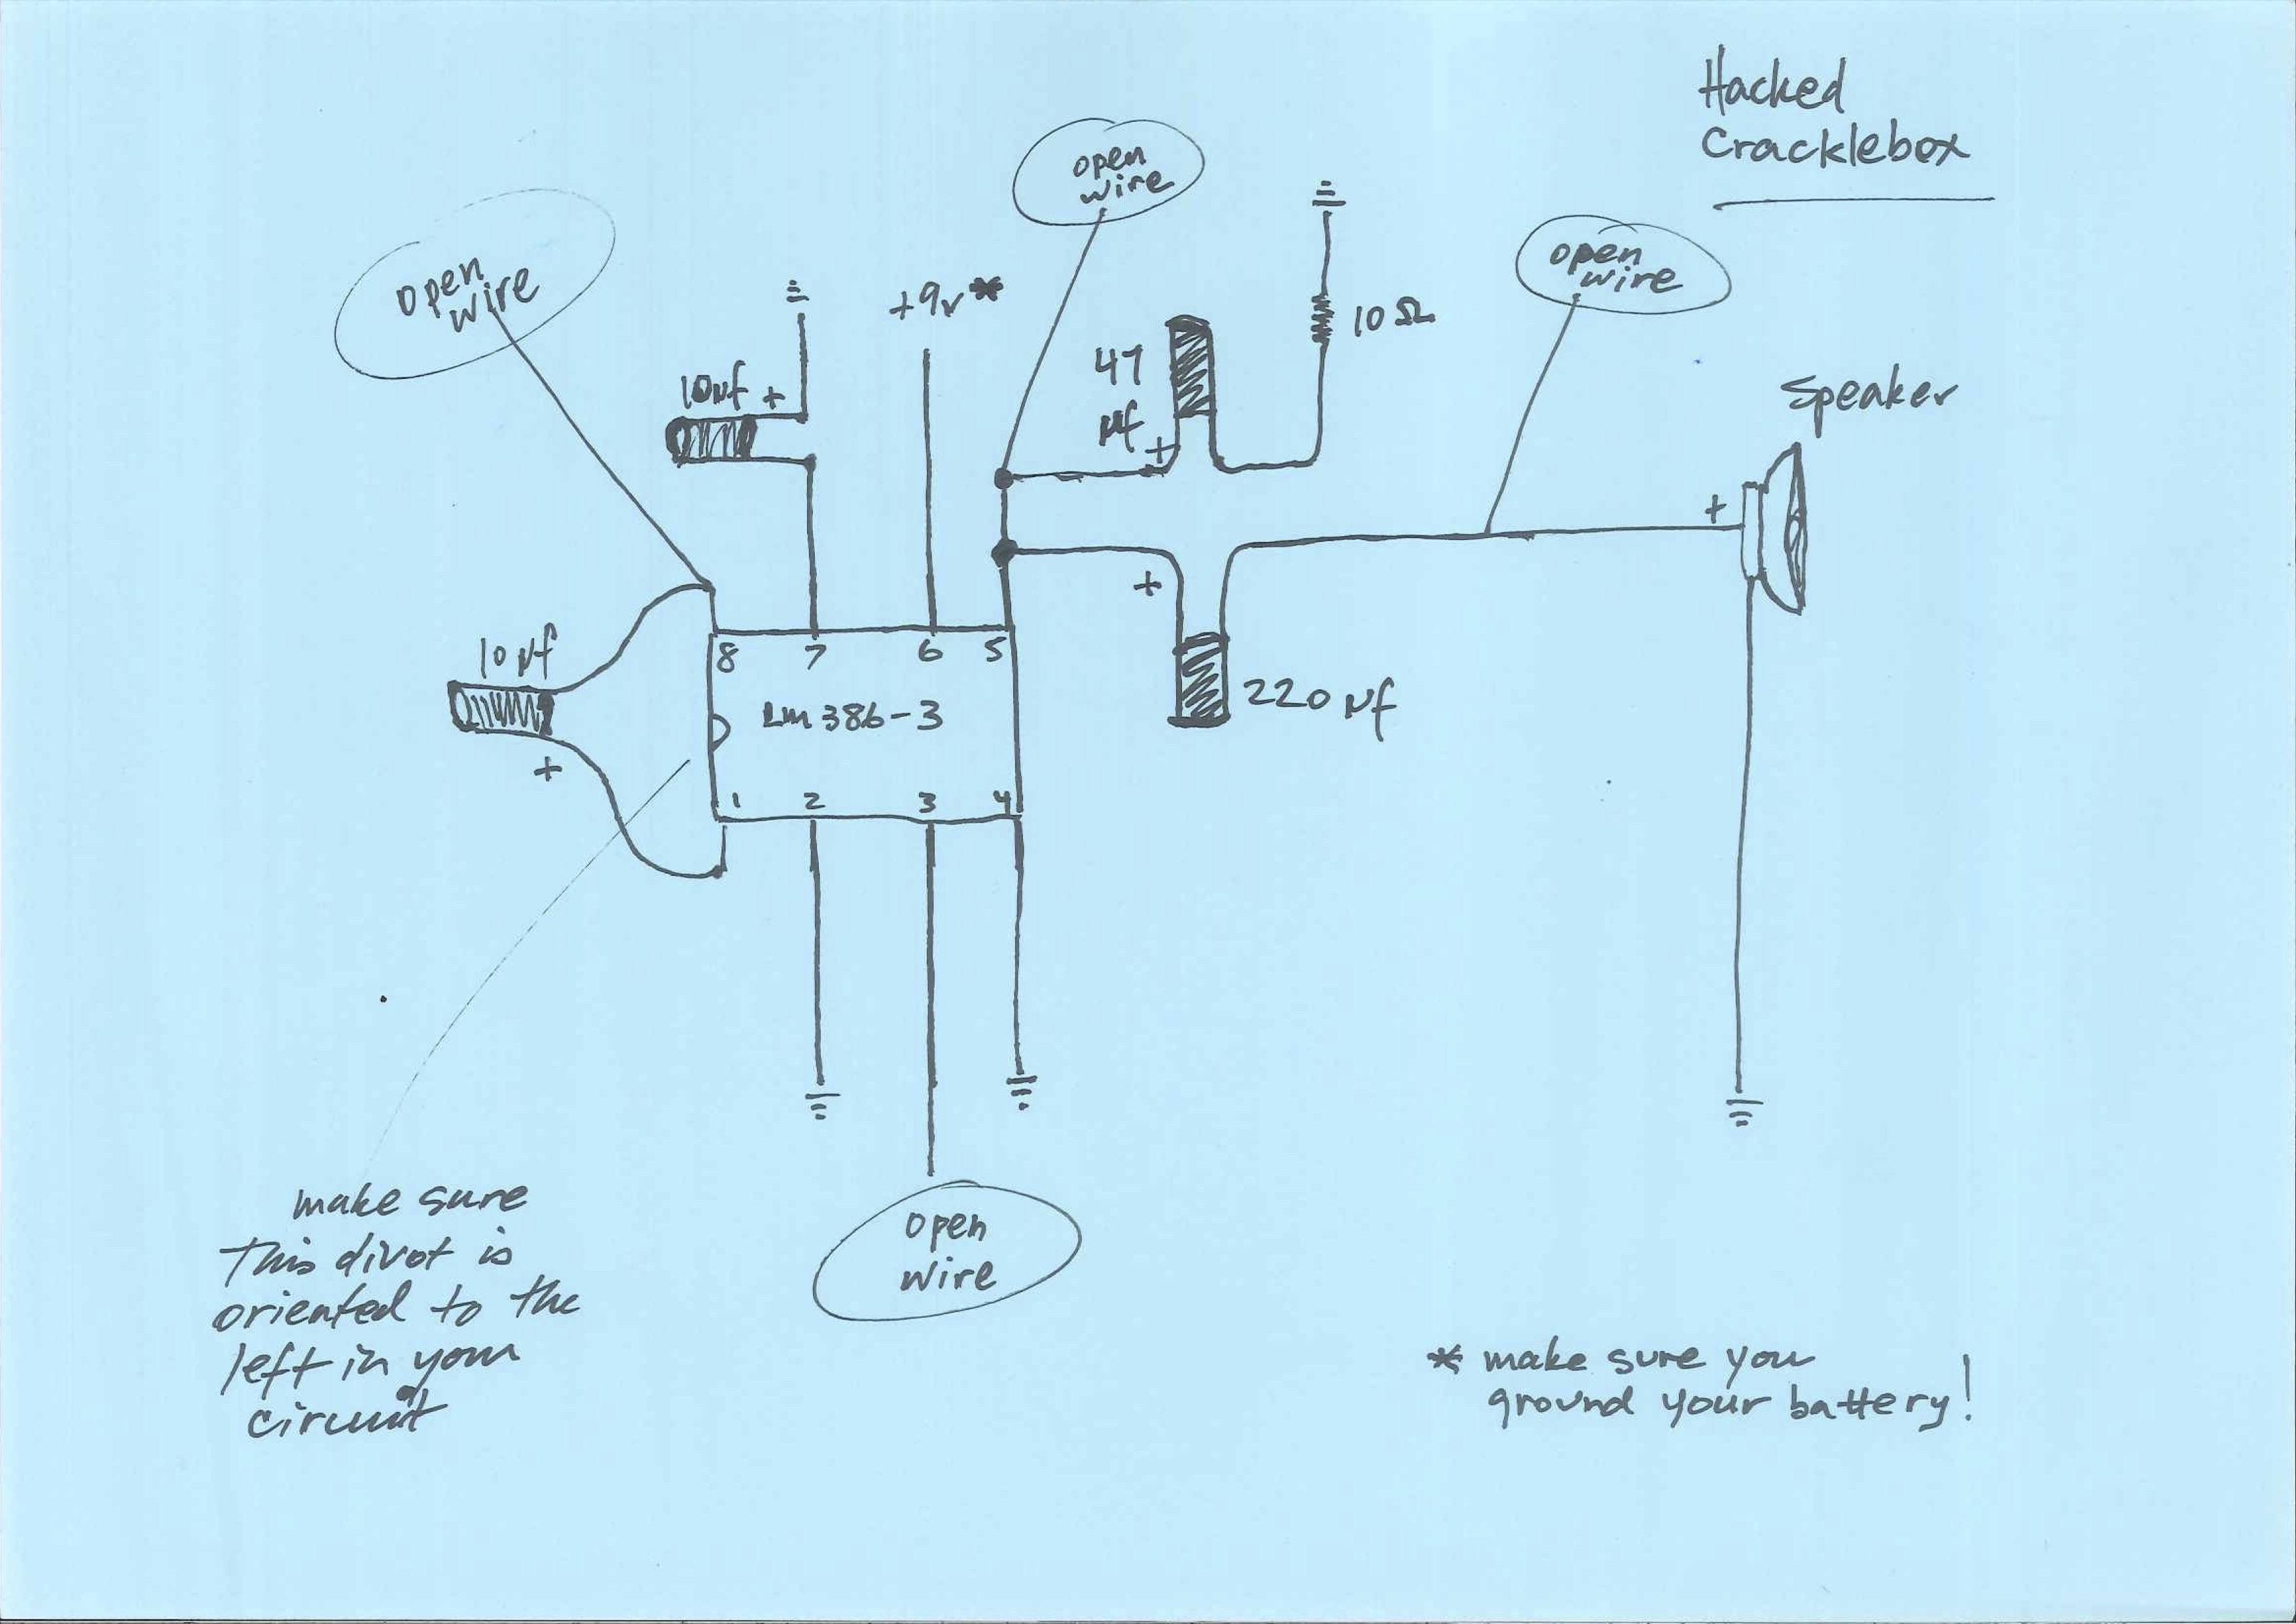 Hacked
Cracklebox
open
wire
open
wire
open
wire
+9v*
10Ω
10µf +
47
µf
+
Speaker
+
+
10µf
+
220µf
8 7 6 5
Lm386-3
1 2 3 4
open
wire
make sure
This divot is
oriented to the
left in your
circuit
* make sure you
ground your battery!